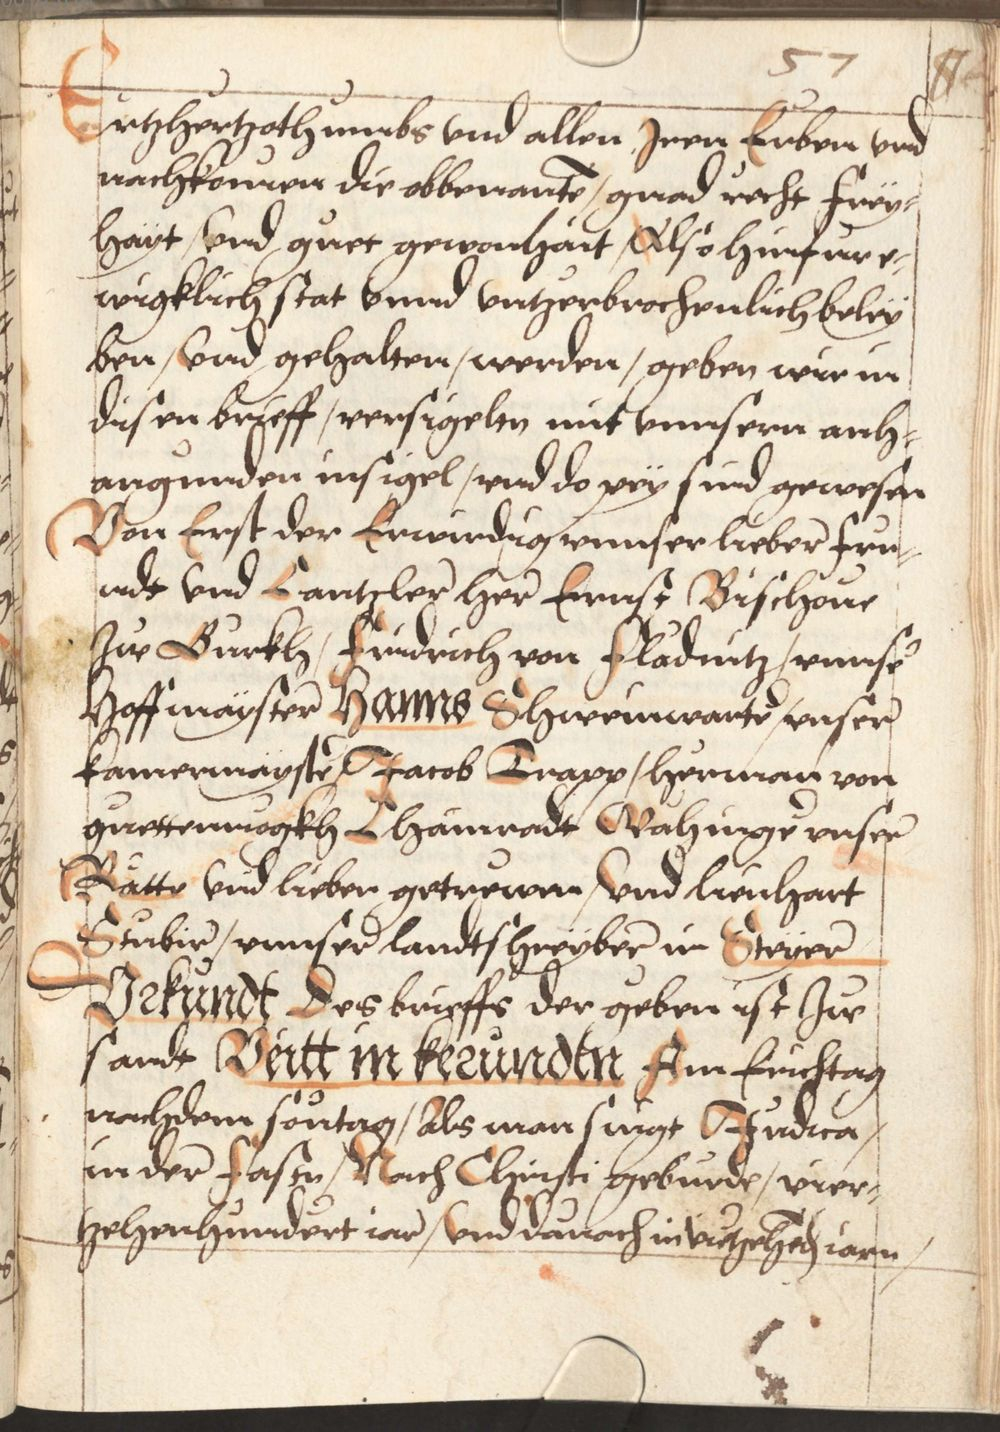 57
Ertzhertzothumbs vnd allen Iren Erben vnd
nachkomen die obbenante / gnad recht frey-
hayt / vnd guet gewonhait / Also hinfur e-
wigklich stat vnnd vntzerbrochenlich beley
ben / vnd gehalten / werden / geben wir in
disen brieff / versigeltn mit vnnsern anh-
angunden insigel / vnd do pey sind gewesen
Von Erst der Erwirdig vnnser lieber fru-
ndt vnd Cantzler her Ernst Bischoue
Zw Gurkh / Fridrich von Fladnitz / vnnser
Hoffmayster Hanns Schweinwarte / vnser
kamermayster / Jacob Trapp / herman von
guettenwogkh Chainradt Vahinger vnser
Rätte vnd lieben getrewen / vnd lienhart
Stubir / vnnser landtshreyber in Steyer
Vrkundt Des brieffs der geben ist Zw
sandt Veitt in kerundtn Am Erichtag
nachdem sontag / Als man singt Judica /
in der Fastn / Nach Christi geburde / vier-
zehenhundert iar / vnd darnach in viertzehen iarn /